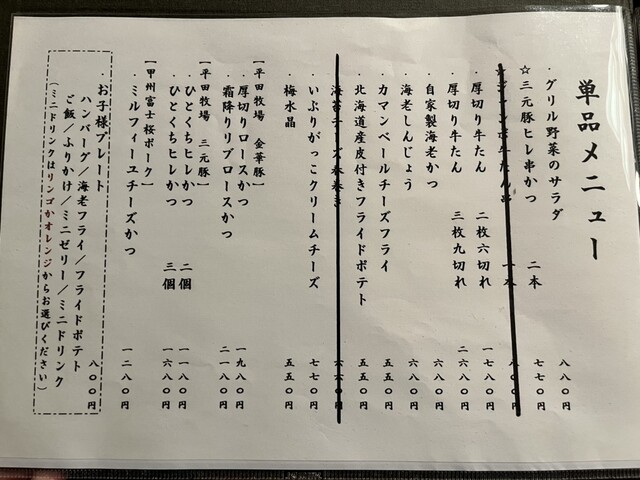 単品メニュー
・グリル野菜のサラダ 八八〇円
☆三元豚ヒレ串かつ 二本 七七〇円
・厚切り牛たん 二枚六切れ 一七八〇円
・厚切り牛たん 三枚九切れ 二六八〇円
・自家製海老かつ 六八〇円
・海老しんじょう 六八〇円
・カマンベールチーズフライ 五五〇円
・北海道産皮付きフライドポテト 五五〇円
・いぶりがっこクリームチーズ 七七〇円
・梅水晶 五五〇円
【平田牧場 金華豚】
・厚切りロースかつ 一九八〇円
・霜降りリブロースかつ 二一八〇円
【平田牧場 三元豚】
・ひとくちヒレかつ 二個 一一八〇円
・ひとくちヒレかつ 三個 一六八〇円
【甲州富士桜ポーク】
・ミルフィーユチーズかつ 一二八〇円
・お子様プレート 八〇〇円
ハンバーグ/海老フライ/フライドポテト
ご飯/ふりかけ/ミニゼリー/ミニドリンク
(ミニドリンクはリンゴかオレンジからお選びください)